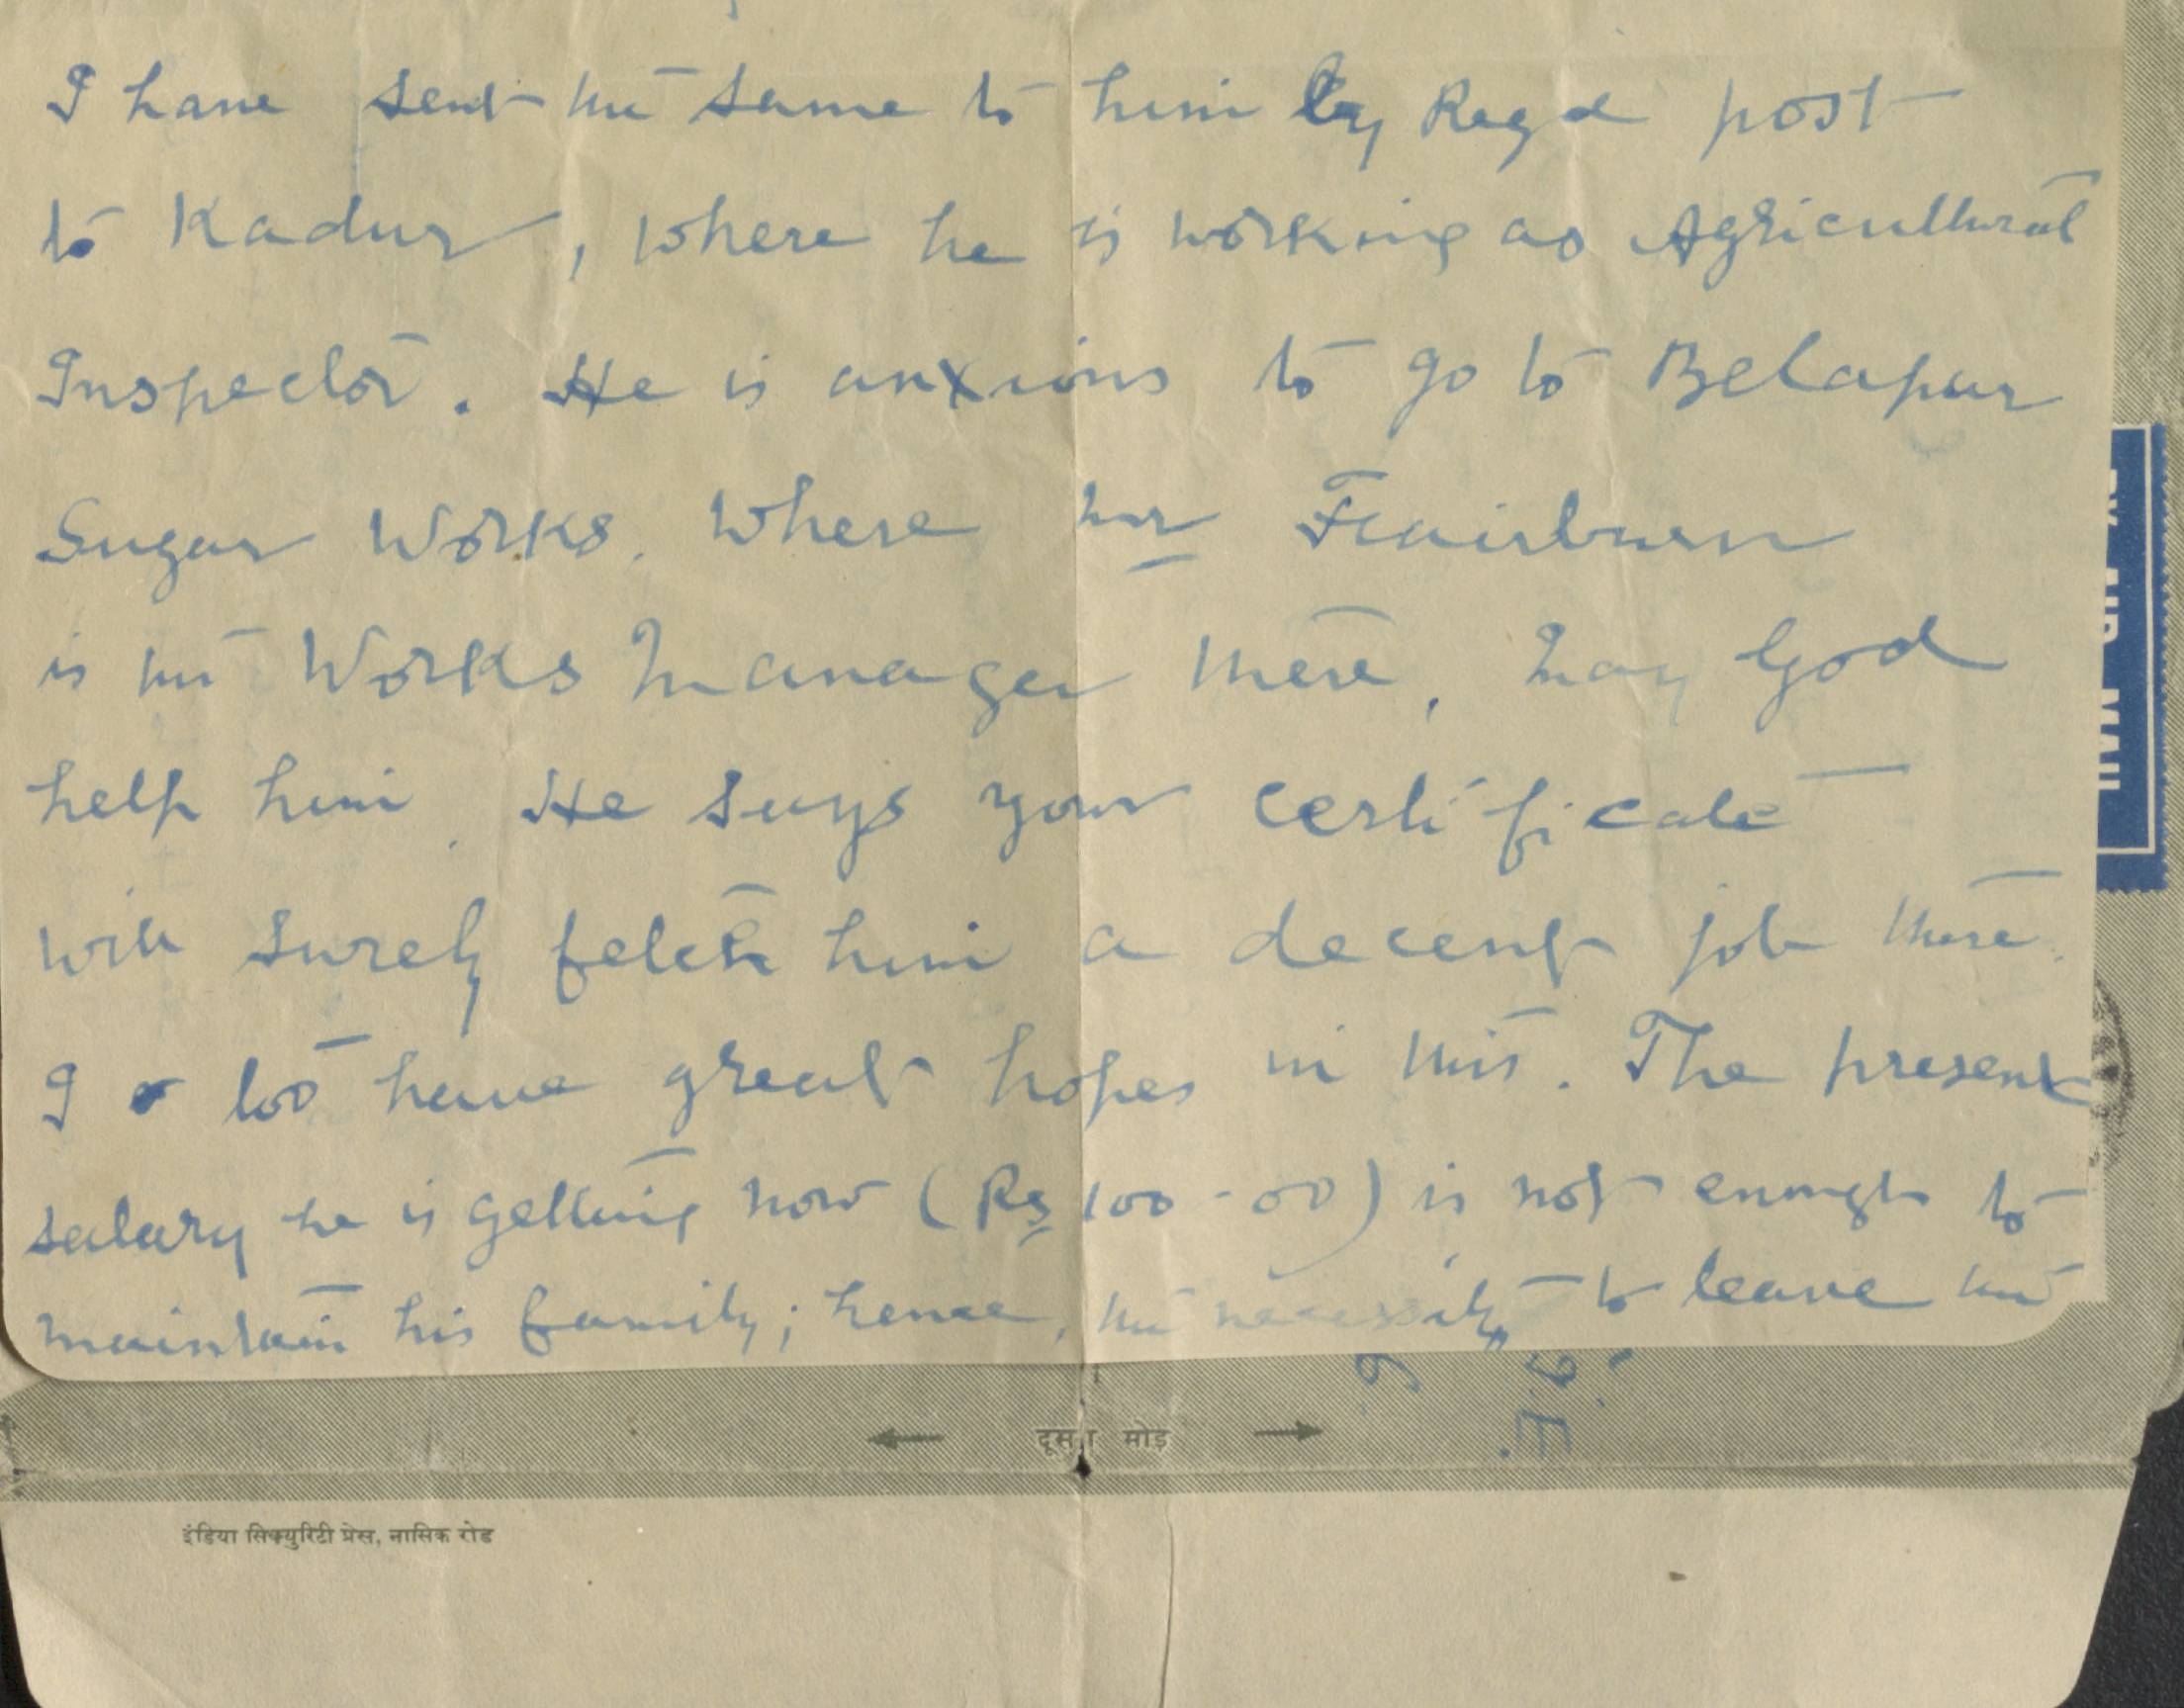 I have sent the same to him by Regd post
to Kadur, where he is working as Agricultural
Inspector. He is anxious to go to Belapur
Sugar Works. Where Mr Fairburn
is the Works Manager there. May God
help him. He says your certificate
will surely fetch him a decent job there.
I too have great hopes in this. The present
salary he is getting now (Rs 100-00) is not enough to
maintain his family; hence, the necessity to leave the
दूसरा मोड़
इंडिया सिक्युरिटी प्रेस, नासिक रोड
BY AIR MAIL